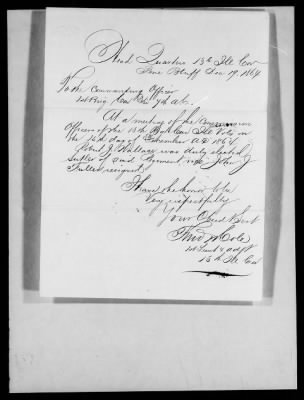 Head Quarters 13th Ill Cav
Pine Bluff Dec 19. 1864
To the Commanding Officer
1st Brig. Cav Div 7th A.C.
At a meeting of the
Officers of the 13th Regt Cav Ill Vols on
the day of December A.D. 1864
Robert J. Wallace was duly elected
Sutler of said Regiment vice John J
Fuller resigned.
I have the honor to be
Very respectfully
Your Obedt Servt
Cole
1st Lieut & Adjt
13th Ill Cav